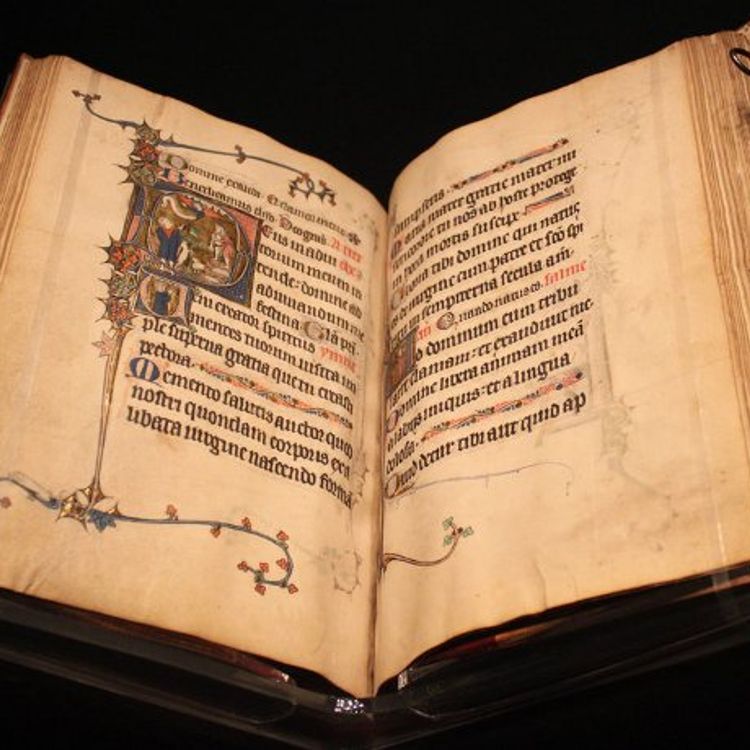 Domine exaudi. Et clamor meus.
Benedicamus dno. Deo gras.
Eus in adiu
torium meum in
tende: domine ad
adiuuandum me
festina. Gla pri.
eni creator spiritus
mentes tuorum uisita im
ple superna gratia que tu creasti
pectora.
Memento salutis auctor quod
nostri quondam corporis ex il
libata uirgine nascendo formā
sumpseris.
mater gratie mater mi
tu nos ab hoste protege
hora mortis suscipe.
tibi domine qui natus
de uirgine cum patre et sco spū
in sempiterna secula am.
dominum cum tribu
clamaui: et exaudiuit me.
Domine libera animam meā
a labijs iniquis: et a lingua
dolosa.
Quid detur tibi aut quid ap